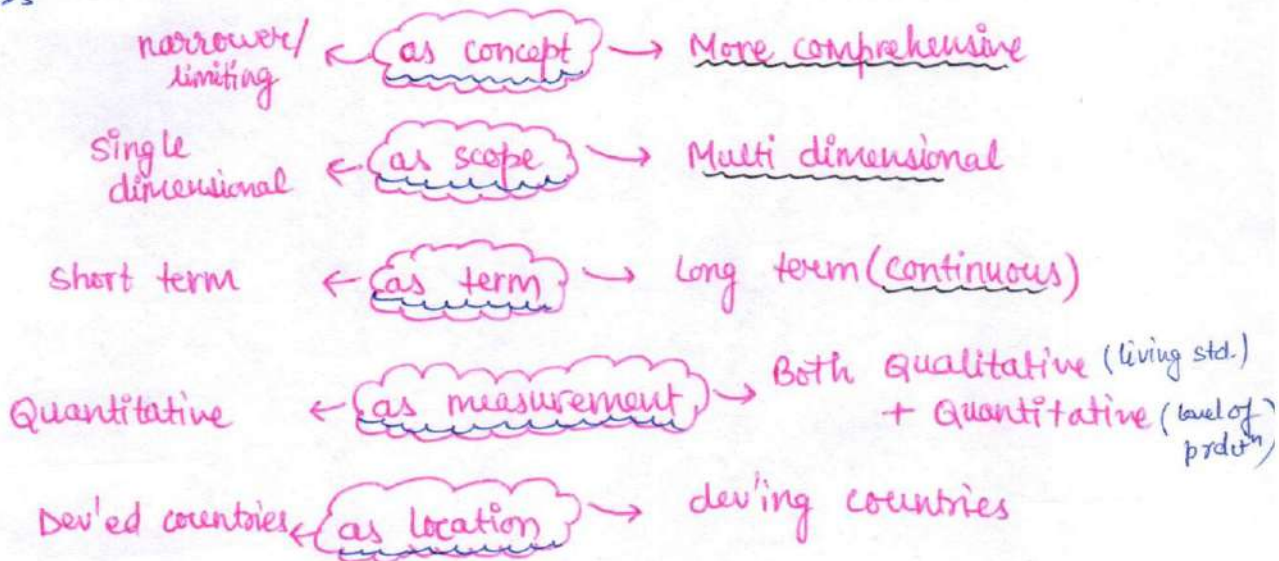 narrower/ ← as concept → More comprehensive
limiting
Single ← as scope → Multi dimensional
dimensional
Short term ← as term → Long term (continuous)
Quantitative ← as measurement → Both Qualitative (living std.)
+ Quantitative (level of
prdctⁿ)
Dev'ed countries ← as location → dev'ing countries